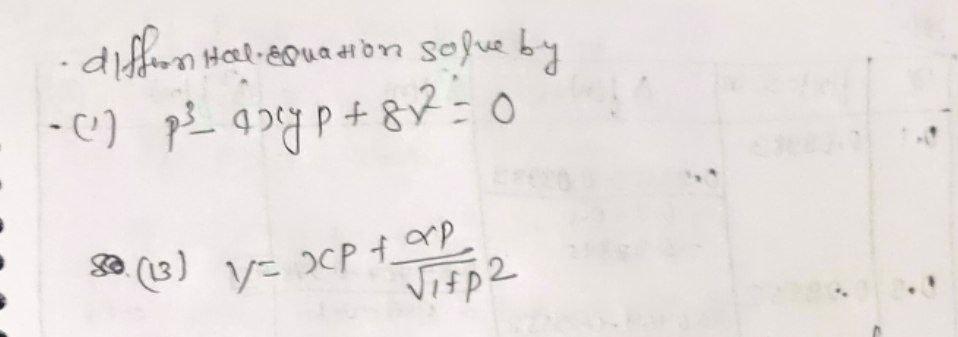 · differential equation solve by
-(1) p³ - 4xyp + 8y² = 0
(13) y = xp + ap/√1+p²